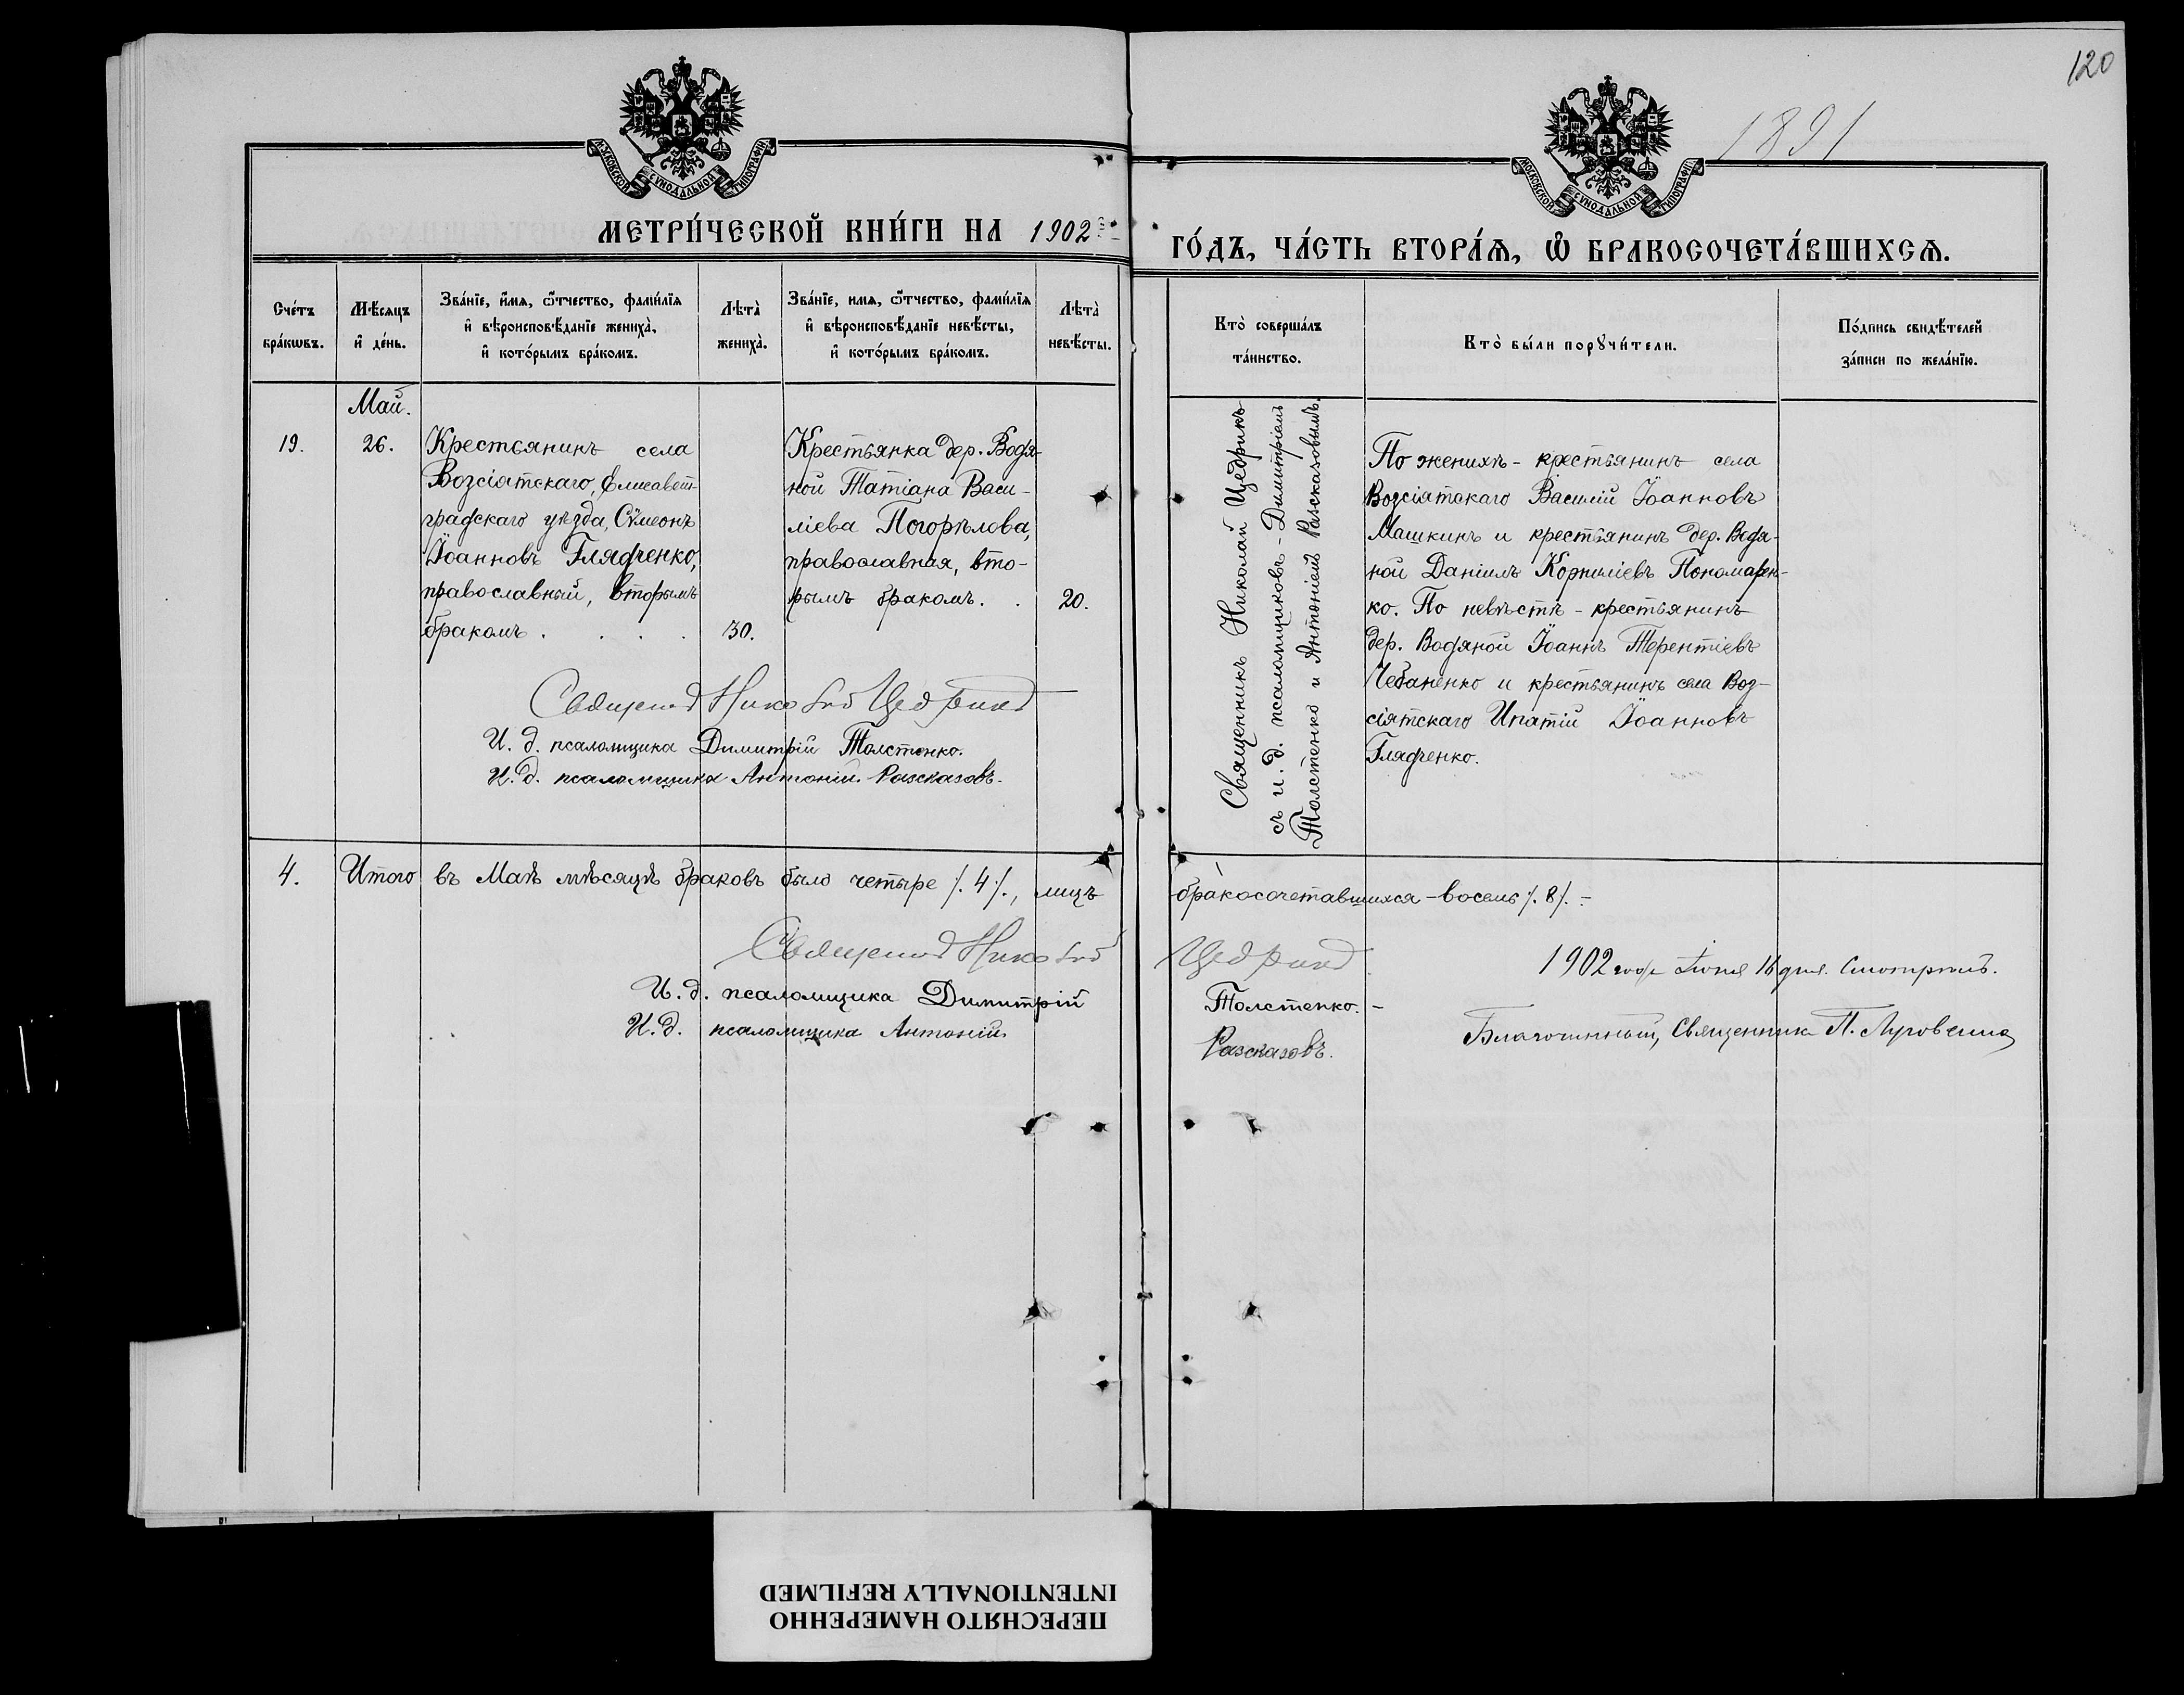 120
1891
МОСКОВСКОЙ СѴНОДАЛЬНОЙ ТИПОГРАФІИ
МОСКОВСКОЙ СѴНОДАЛЬНОЙ ТИПОГРАФІИ
МЕТРИ́ЧЕСКОЙ КНИ́ГИ НА 1902
ГО́ДЪ, ЧА́СТЬ ВТОРА́Ѧ, Ѡ БРАКОСОЧЕТА́ВШИХСѦ.
Сче́тъ бра́кѡвъ.
Мѣ́сяцъ и де́нь.
Зва́нїе, и́мѧ, ѻ́тчество, фами́лїѧ и вѣроисповѣ́данїе жениха̀, и кото́рымъ бра́комъ.
Лѣта̀ жениха̀.
Зва́нїе, имѧ, ѻ́тчество, фами́лїѧ и вѣроисповѣ́данїе невѣ́сты, и кото́рымъ бра́комъ.
Лѣта̀ невѣ́сты.
Кто̀ соверша́лъ та́инство.
Кто̀ бы́ли порꙋчи́тели.
По́дпись свидѣ́телей за́писи по жела́нїю.
Май.
19. 26.
Крестьянинъ села
Возсіятскаго, Елисавет-
градскаго уѣзда, Сѵмеонъ
Іоанновъ Глядченко,
православный, вторымъ
бракомъ . . . . 30.
Крестьянка дер. Водя-
ной Татіана Васи-
ліева Погорѣлова,
православная, вто-
рымъ бракомъ. . 20.
Священникъ Николай Цедрикъ
съ и. д. псаломщиковъ - Димитріемъ
Толстенко и Антоніемъ Разсказовымъ.
По женихѣ - крестьянинъ села
Возсіятскаго Василій Іоанновъ
Машкинъ и крестьянинъ дер. Водя-
ной Даніилъ Корниліевъ Пономарен-
ко. По невѣстѣ - крестьянинъ
дер. Водяной Іоаннъ Терентіевъ
Чебаненко и крестьянинъ села Воз-
сіятскаго Ипатій Іоанновъ
Глядченко.
Священникъ Николай Цедрикъ
И. д. псаломщика Димитрій Толстенко.
И. д. псаломщика Антоній Разсказовъ.
4. Итого въ Маѣ мѣсяцѣ браковъ было четыре /. 4 /., лицъ бракосочетавшихся - восемь /. 8 /. -
Священникъ Николай Цедрикъ
И. д. псаломщика Димитрій Толстенко. -
И. д. псаломщика Антоній Разсказовъ.
1902 года Іюня 16 дня. Смотрѣлъ.
Благочинный, Священникъ П.
ПЕРЕСНЯТО НАМЕРЕННО
INTENTIONALLY REFILMED